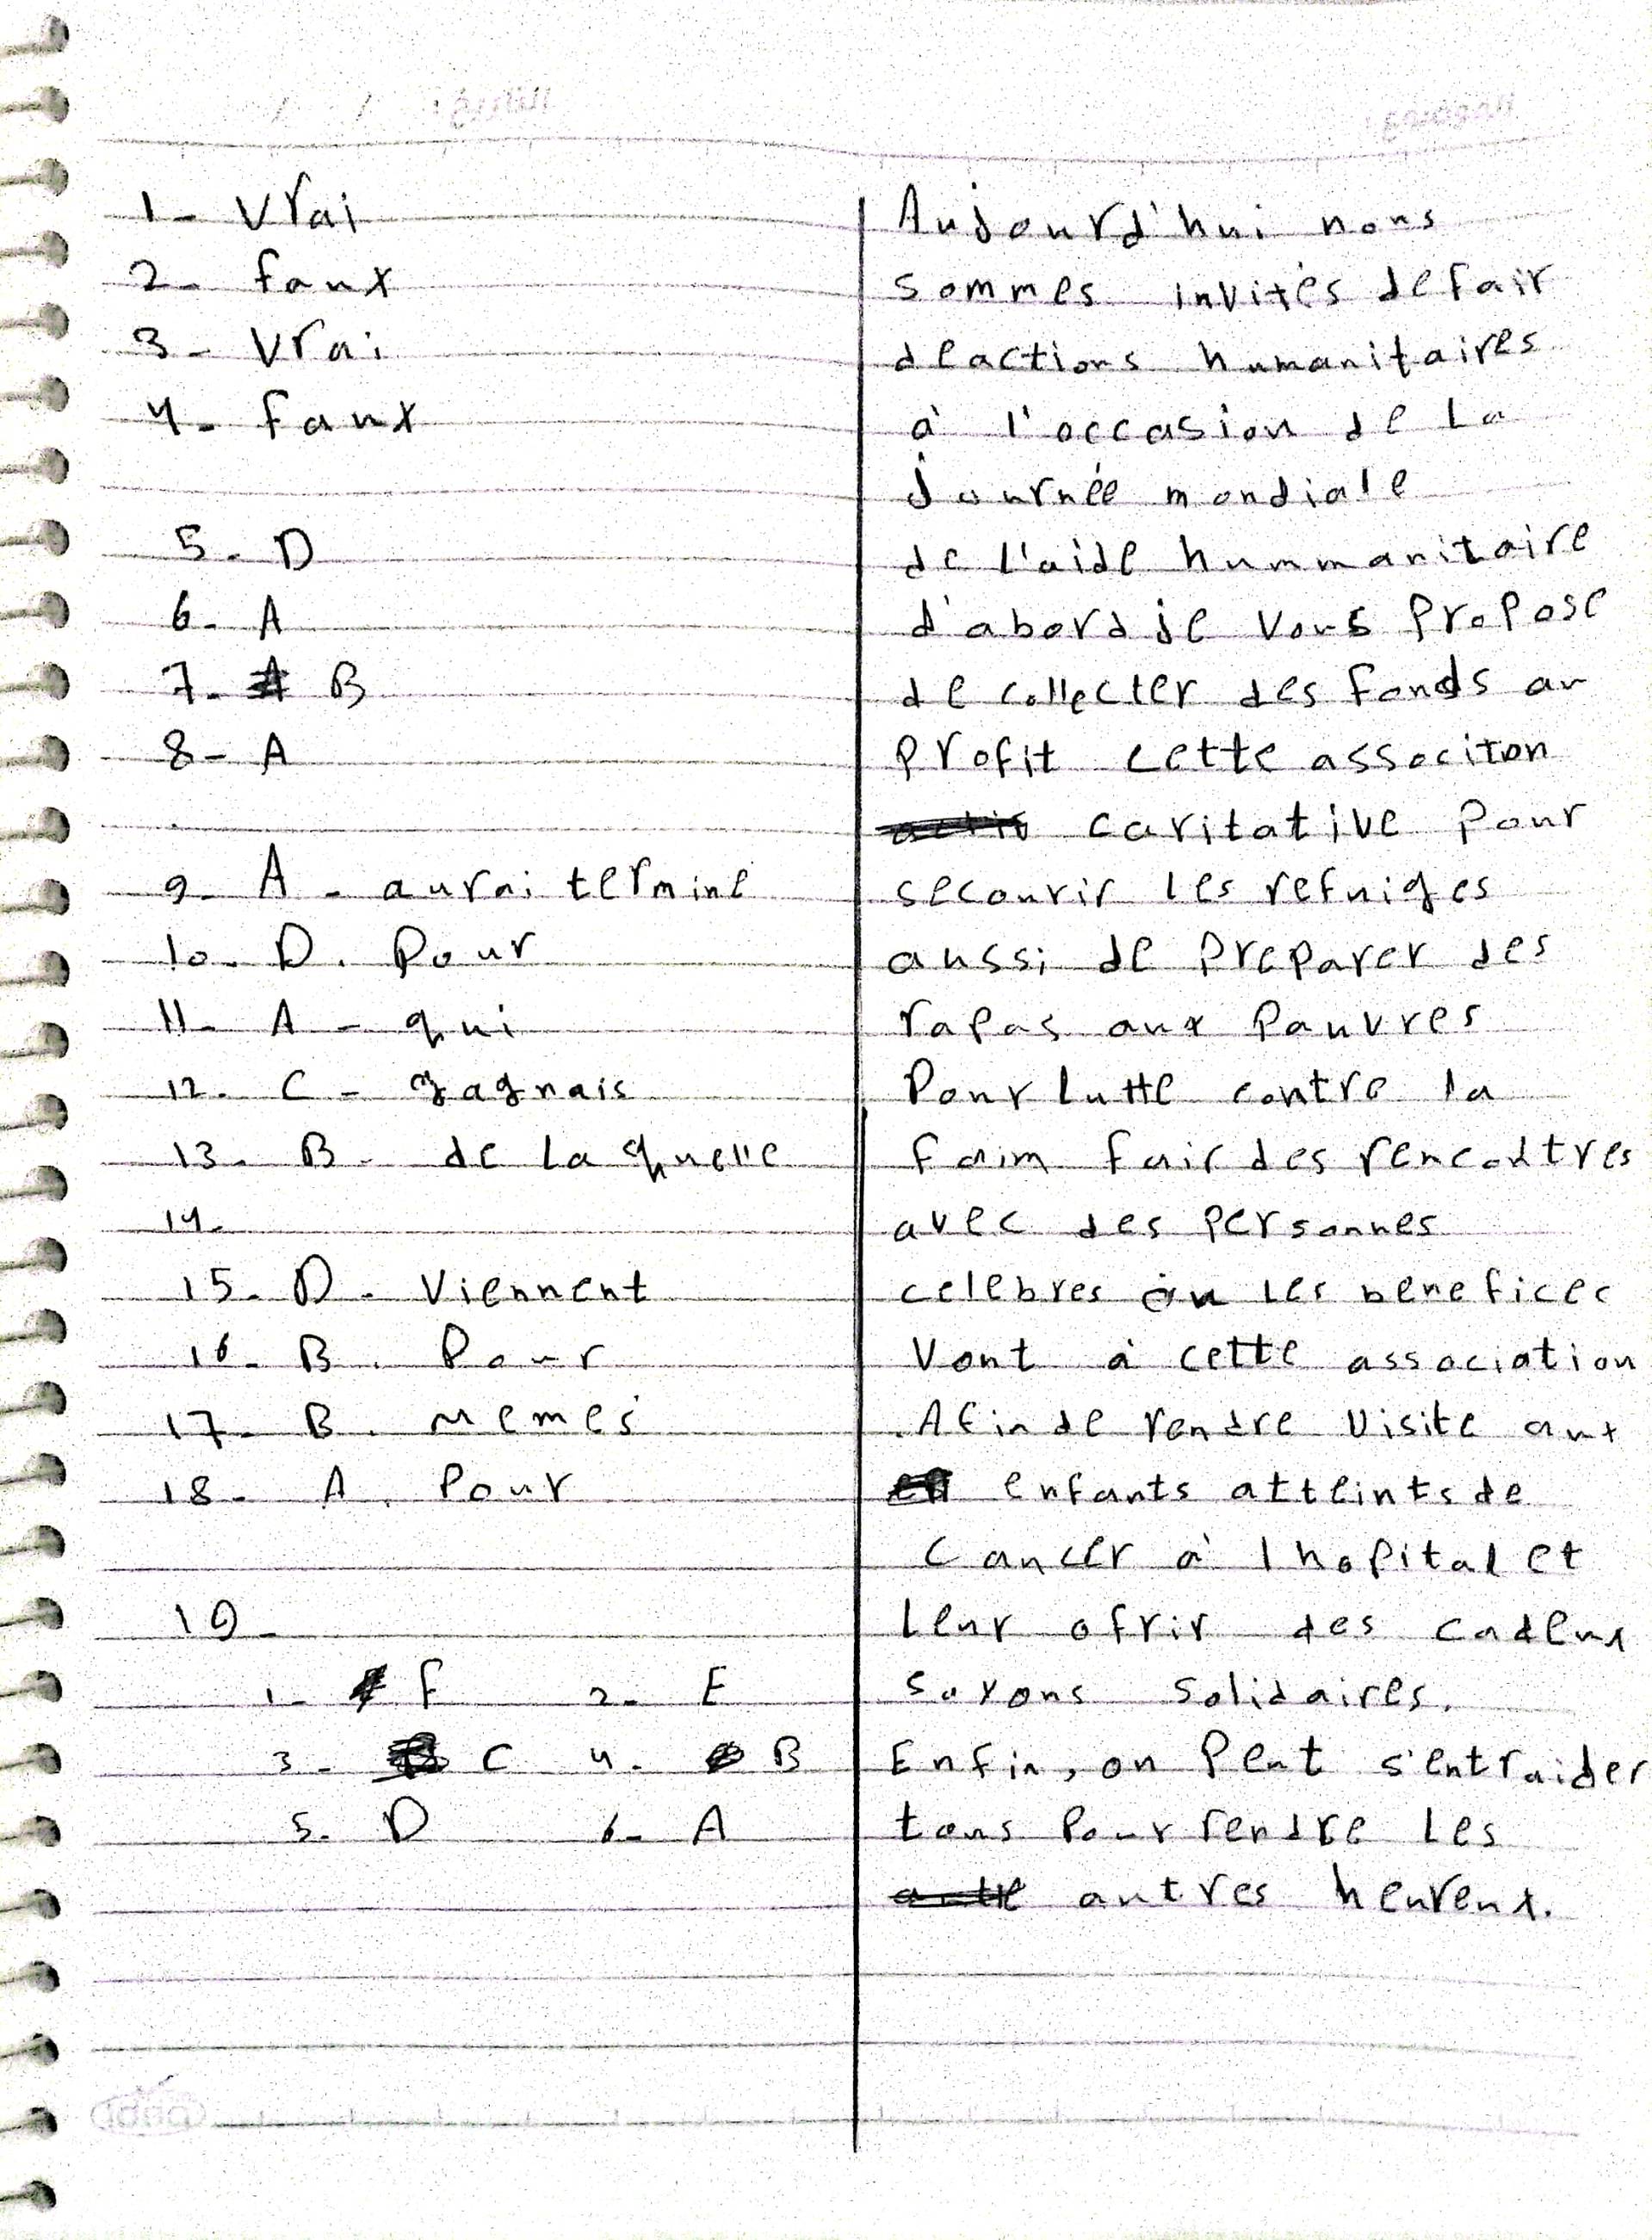 1- Vrai
2- faux
3- Vrai
4- faux
5- D
6- A
7- B
8- A
9- A - aurai termine
10- D. Pour
11- A - qui
12- C - gagnais
13- B- de la quelle
14-
15- D- Viennent
16- B. Pour
17- B. Memes
18- A. Pour
19-
1- F 2- E
3- C 4- B
5- D 6- A
Aujourd'hui nous
sommes invités de fair
de actions humanitaires
à l'occasion de la
journée mondiale
de l'aide hummanitaire
d'abord je vous propose
de collecter des fonds au
profit cette associton
caritative pour
secourir les refuiges
aussi de preparer des
rapas aux pauvres
Pour lutte contre la
faim fair des rencontres
avec des personnes
celebres ou les benefices
vont à cette association
. Afin de rendre visite aux
enfants atteints de
cancer à l hopital et
leur ofrir des cadeux
soyons solidaires.
Enfin, on peut s'entraider
tous pour rendre les
autres heureux.